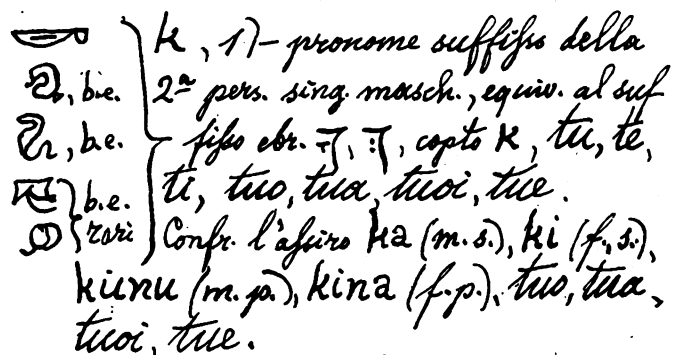 k, 1)- pronome suffisso della
b.e. 2ª pers. sing. masch., equiv. al suf
b.e. fisso ebr. ךָ, ךְ, copto ⲕ, tu, te,
b.e. ti, tuo, tua, tuoi, tue.
rari Confr. l'assiro ka (m.s.), ki (f.s.),
kunu (m.p.), kina (f.p.), tuo, tua,
tuoi, tue.